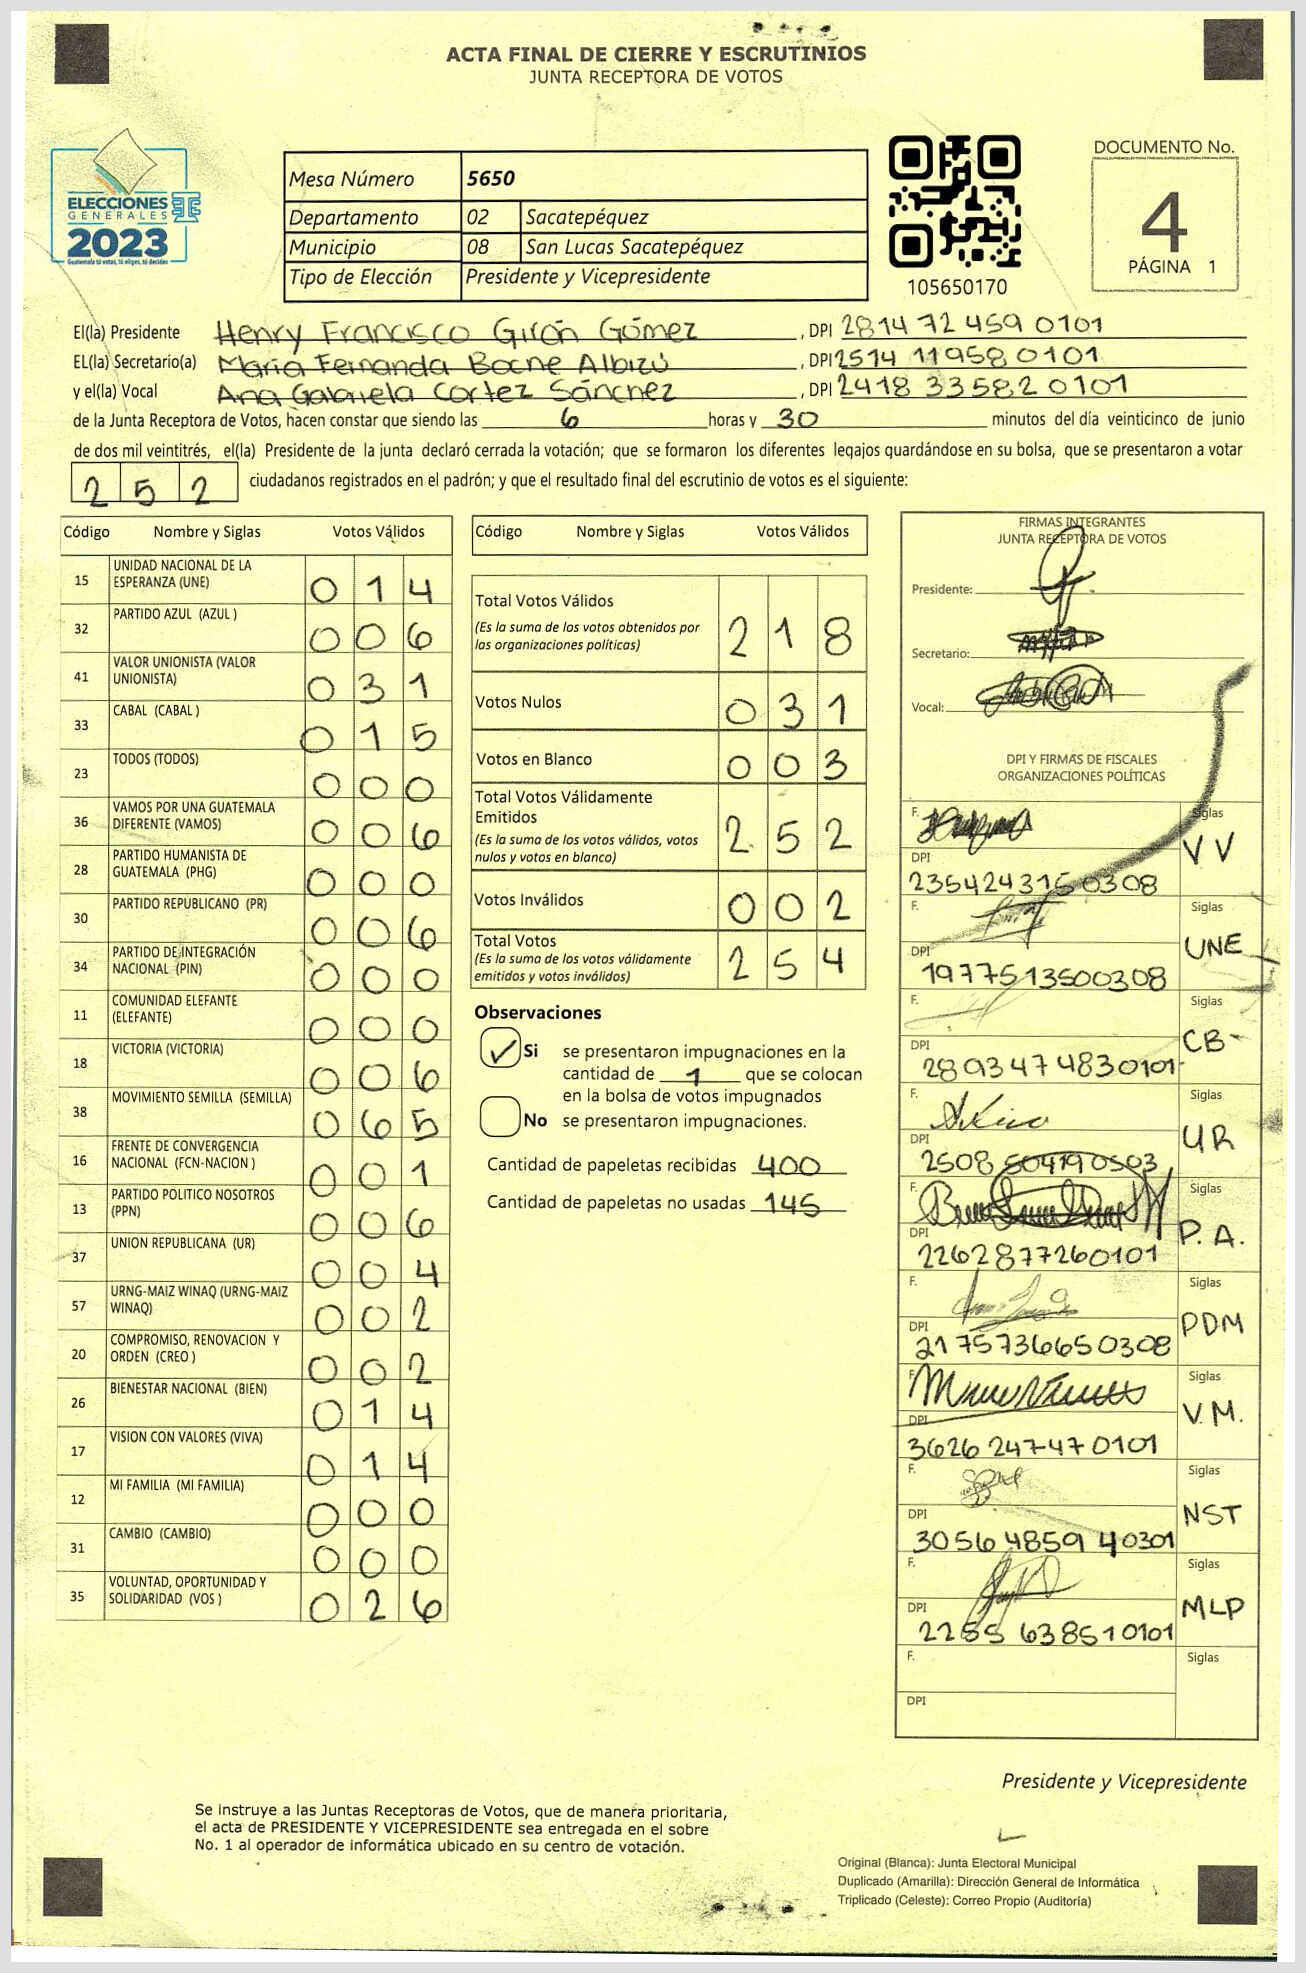 ACTA FINAL DE CIERRE Y ESCRUTINIOS
JUNTA RECEPTORA DE VOTOS
ELECCIONES
GENERALES
2023
Guatemala tú votas, tú eliges, tú decides
Mesa Número 5650
Departamento 02 Sacatepéquez
Municipio 08 San Lucas Sacatepéquez
Tipo de Elección Presidente y Vicepresidente
105650170
DOCUMENTO No.
4
PÁGINA 1
El(la) Presidente Henry Francisco Girón Gómez, DPI 2814 72 459 0101
EL(la) Secretario(a) María Fernanda Bocne Albizú, DPI 2514 11958 0101
y el(la) Vocal Ana Gabriela Cortez Sánchez, DPI 2418 33582 0101
de la Junta Receptora de Votos, hacen constar que siendo las 6 horas y 30 minutos del día veinticinco de junio
de dos mil veintitrés, el(la) Presidente de la junta declaró cerrada la votación; que se formaron los diferentes legajos guardándose en su bolsa, que se presentaron a votar
252 ciudadanos registrados en el padrón; y que el resultado final del escrutinio de votos es el siguiente:
Código Nombre y Siglas Votos Válidos
15 UNIDAD NACIONAL DE LA
ESPERANZA (UNE) 014
32 PARTIDO AZUL (AZUL ) 006
41 VALOR UNIONISTA (VALOR
UNIONISTA) 031
33 CABAL (CABAL ) 015
23 TODOS (TODOS) 000
36 VAMOS POR UNA GUATEMALA
DIFERENTE (VAMOS) 006
28 PARTIDO HUMANISTA DE
GUATEMALA (PHG) 000
30 PARTIDO REPUBLICANO (PR) 006
34 PARTIDO DE INTEGRACIÓN
NACIONAL (PIN) 000
11 COMUNIDAD ELEFANTE
(ELEFANTE) 000
18 VICTORIA (VICTORIA) 006
38 MOVIMIENTO SEMILLA (SEMILLA) 065
16 FRENTE DE CONVERGENCIA
NACIONAL (FCN-NACION ) 001
13 PARTIDO POLITICO NOSOTROS
(PPN) 006
37 UNION REPUBLICANA (UR) 004
57 URNG-MAIZ WINAQ (URNG-MAIZ
WINAQ) 002
20 COMPROMISO, RENOVACION Y
ORDEN (CREO ) 002
26 BIENESTAR NACIONAL (BIEN) 014
17 VISION CON VALORES (VIVA) 014
12 MI FAMILIA (MI FAMILIA) 000
31 CAMBIO (CAMBIO) 000
35 VOLUNTAD, OPORTUNIDAD Y
SOLIDARIDAD (VOS ) 026
Código Nombre y Siglas Votos Válidos
Total Votos Válidos 218
(Es la suma de los votos obtenidos por
las organizaciones políticas)
Votos Nulos 031
Votos en Blanco 003
Total Votos Válidamente
Emitidos 252
(Es la suma de los votos válidos, votos
nulos y votos en blanco)
Votos Inválidos 002
Total Votos 254
(Es la suma de los votos válidamente
emitidos y votos inválidos)
Observaciones
Si se presentaron impugnaciones en la
cantidad de 1 que se colocan
en la bolsa de votos impugnados
No se presentaron impugnaciones.
Cantidad de papeletas recibidas 400
Cantidad de papeletas no usadas 145
FIRMAS INTEGRANTES
JUNTA RECEPTORA DE VOTOS
Presidente:
Secretario:
Vocal:
DPI Y FIRMAS DE FISCALES
ORGANIZACIONES POLÍTICAS
F. Siglas
VV
DPI
2354243150308
F. Siglas
UNE
DPI
1977513500308
F. Siglas
CB-
DPI
2893474830101
F. Siglas
UR
DPI
2508 504190503
F. Siglas
P.A.
DPI
2262877260101
F. Siglas
PDM
DPI
2175736650308
F. Siglas
V.M.
DPI
3626 247470101
F. Siglas
NST
DPI
3056 4859 40301
F. Siglas
MLP
DPI
2255 638510101
F. Siglas
DPI
Presidente y Vicepresidente
Se instruye a las Juntas Receptoras de Votos, que de manera prioritaria,
el acta de PRESIDENTE Y VICEPRESIDENTE sea entregada en el sobre
No. 1 al operador de informática ubicado en su centro de votación.
Original (Blanca): Junta Electoral Municipal
Duplicado (Amarilla): Dirección General de Informática
Triplicado (Celeste): Correo Propio (Auditoría)